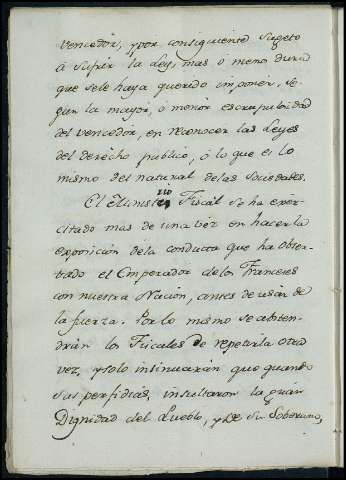 vencedor, y por consiguiente sugeto
á sufrir la Ley, mas o menos dura
que sele haya querido imponer, se-
gun la mayor, o menor escrupulosidad
del vencedor, en reconocer las Leyes
del derecho publico, ó lo que es lo
mismo del natural de las Sociedades.
El Ministerio Fiscal se ha exer-
citado mas de una vez en hacer la
exposicion de la conducta que ha obser-
bado el Emperador delos Franceses
con nuestra Nacion, antes de usár de
la fuerza. Por lo mismo se absten-
drán los Fiscales de repetirla otra
vez, y solo insinuarán que quando
sus perfidias, insultaron la gran
Dignidad del Pueblo, y de su Soberano,